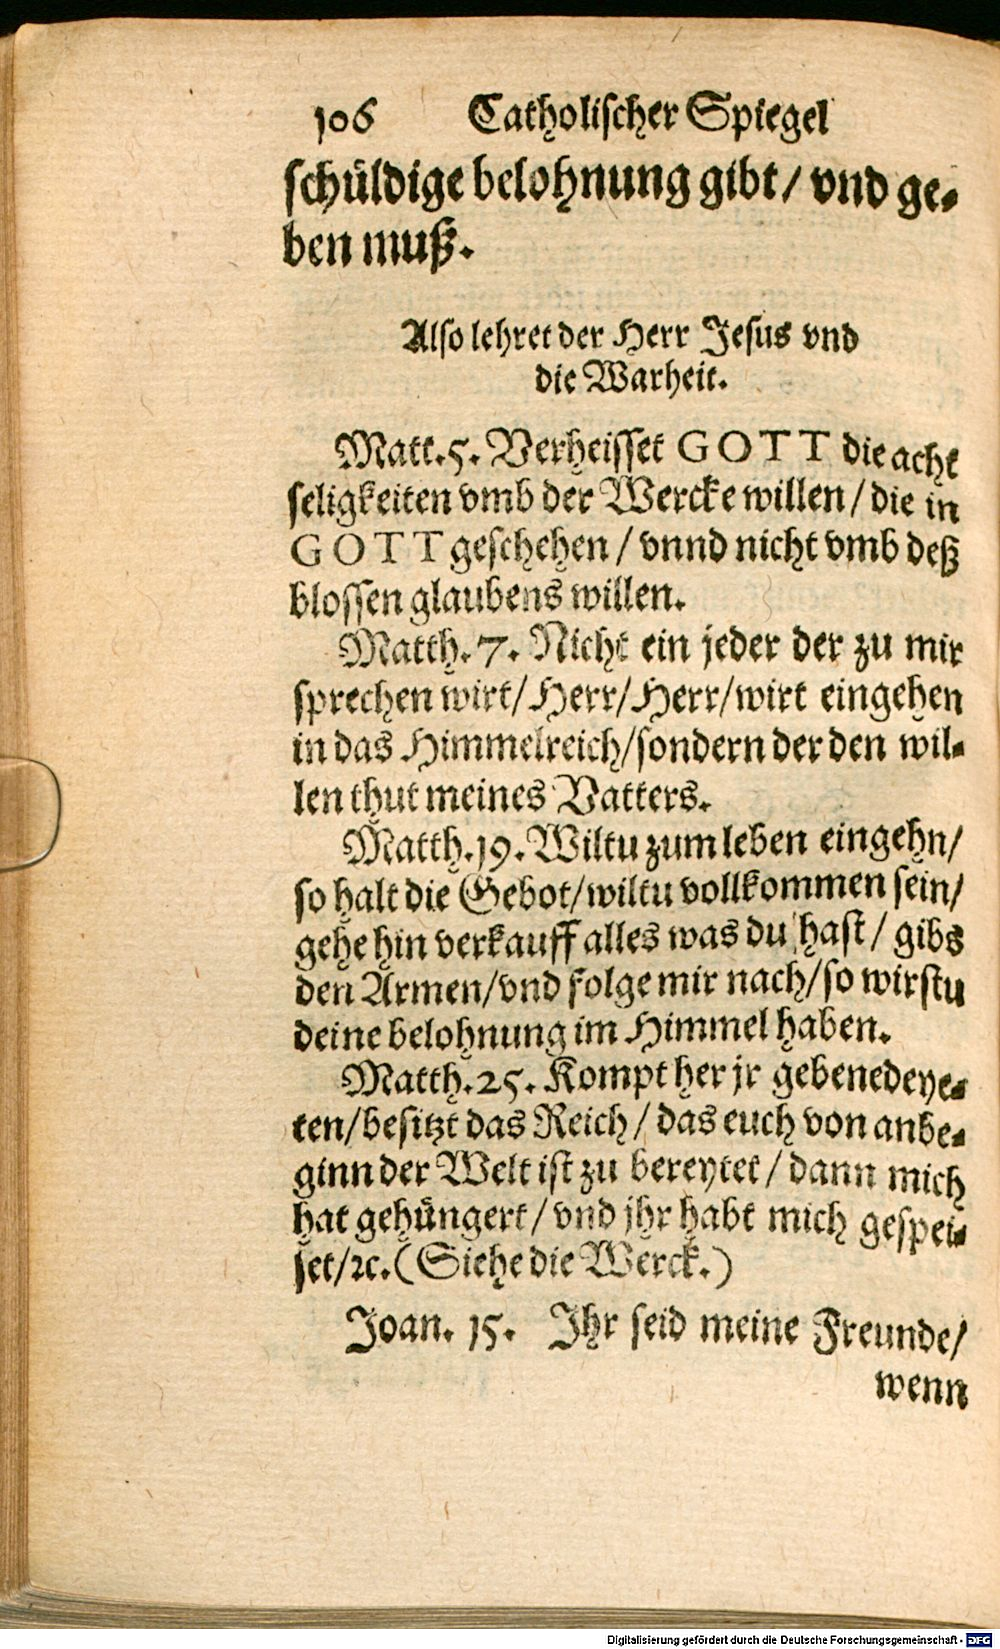 106 Catholischer Spiegel
schüldige belohnung gibt/ vnd ge-
ben muß.
Also lehret der Herr Jesus vnd
die Warheit.
Matt. 5. Verheisset GOTT die acht
seligkeiten vmb der Wercke willen/ die in
GOTT geschehen/ vnnd nicht vmb deß
blossen glaubens willen.
Matth. 7. Nicht ein jeder der zu mir
sprechen wirt/Herr/Herr/wirt eingehen
in das Himmelreich/sondern der den wil-
len thut meines Vatters.
Matth. 19. Wiltu zum leben eingehn/
so halt die Gebot/wiltu vollkommen sein/
gehe hin verkauff alles was du hast/ gibs
den Armen/vnd folge mir nach/so wirstu
deine belohnung im Himmel haben.
Matth. 25. Kompt her jr gebenedeye-
ten/besitzt das Reich/ das euch von anbe-
ginn der Welt ist zu bereytet/ dann mich
hat gehüngert/ vnd jhr habt mich gespei-
set/ꝛc.(Siehe die Werck.)
Joan. 15. Ihr seid meine Freunde/
wenn
Digitalisierung gefördert durch die Deutsche Forschungsgemeinschaft - DFG